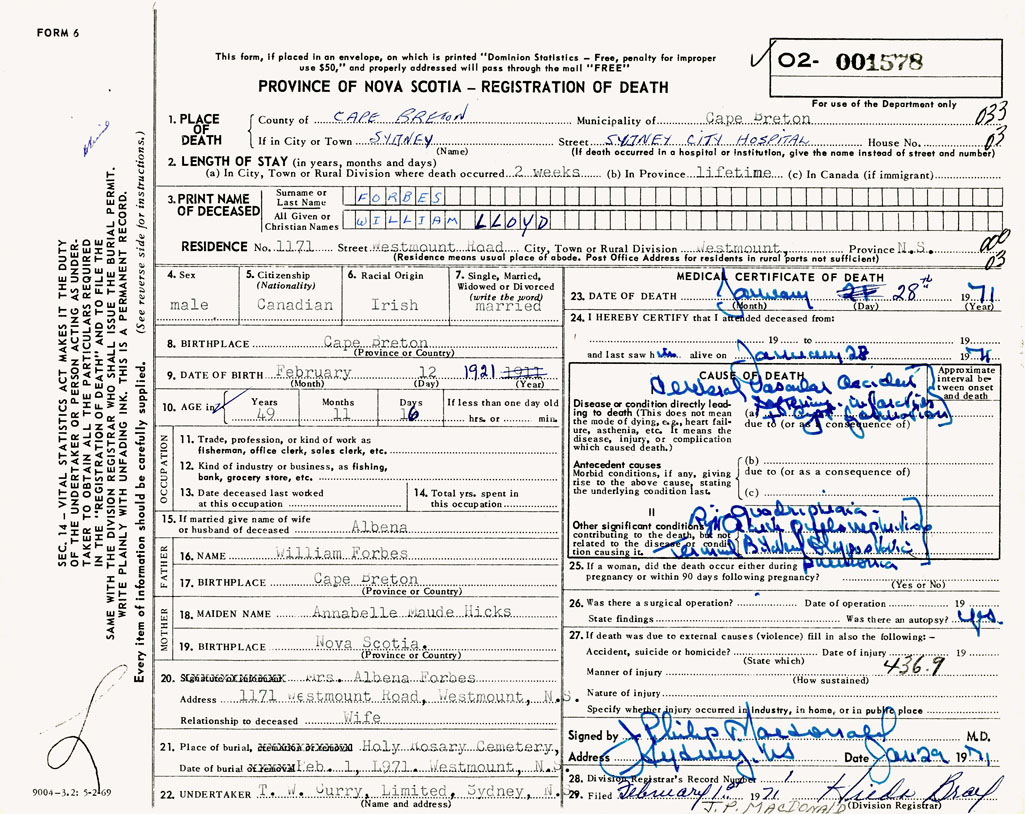 FORM 6
This form, if placed in an envelope, on which is printed "Dominion Statistics – Free, penalty for improper
use $50," and properly addressed will pass through the mail "FREE"
✓ 02- 001578
For use of the Department only
PROVINCE OF NOVA SCOTIA – REGISTRATION OF DEATH
1. PLACE OF DEATH
County of CAPE BRETON Municipality of Cape Breton 033
If in City or Town SYDNEY Street SYDNEY CITY HOSPITAL House No. 03
(Name) (If death occurred in a hospital or institution, give the name instead of street and number)
2. LENGTH OF STAY (in years, months and days)
(a) In City, Town or Rural Division where death occurred 2 weeks (b) In Province lifetime (c) In Canada (if immigrant)
3. PRINT NAME OF DECEASED
Surname or Last Name FORBES
All Given or Christian Names WILLIAM LLOYD
RESIDENCE No. 1171 Street Westmount Road City, Town or Rural Division Westmount Province N.S. 000
(Residence means usual place of abode. Post Office Address for residents in rural parts not sufficient) 03
4. Sex
male
5. Citizenship (Nationality)
Canadian
6. Racial Origin
Irish
7. Single, Married, Widowed or Divorced (write the word)
married
8. BIRTHPLACE Cape Breton
(Province or Country)
9. DATE OF BIRTH February 12 1921 1911
(Month) (Day) (Year)
10. AGE in Years 49 Months 11 Days 16 If less than one day old hrs. or min.
OCCUPATION
11. Trade, profession, or kind of work as
fisherman, office clerk, sales clerk, etc.
12. Kind of industry or business, as fishing,
bank, grocery store, etc.
13. Date deceased last worked
at this occupation
14. Total yrs. spent in
this occupation
15. If married give name of wife
or husband of deceased Albena
FATHER
16. NAME William Forbes
17. BIRTHPLACE Cape Breton
(Province or Country)
MOTHER
18. MAIDEN NAME Annabelle Maude Hicks
19. BIRTHPLACE Nova Scotia.
(Province or Country)
20. Signature of informant Mrs. Albena Forbes
Address 1171 Westmount Road, Westmount, N.S.
Relationship to deceased Wife
21. Place of burial, cremation or removal Holy Rosary Cemetery,
Date of burial or removal Feb. 1, 1971. Westmount, N.S.
22. UNDERTAKER T. W. Curry, Limited, Sydney, N.S.
(Name and address)
MEDICAL CERTIFICATE OF DEATH
23. DATE OF DEATH January 28th 1971
(Month) (Day) (Year)
24. I HEREBY CERTIFY that I attended deceased from:
19 to 19
and last saw him alive on January 28 1971
CAUSE OF DEATH
Approximate interval between onset and death
Cerebral Vascular Accident
Disease or condition directly leading
to death (This does not mean
the mode of dying, e.g., heart failure,
asthenia, etc. It means the
disease, injury, or complication
which caused death.)
(a)
due to (or as a consequence of)
Antecedent causes
Morbid conditions, if any, giving
rise to the above cause, stating
the underlying condition last.
(b)
due to (or as a consequence of)
(c)
II
Other significant conditions
contributing to the death, but not
related to the disease or condition
causing it.
Quadriplegia -
Pyelonephritis
Terminal Hypostatic
pneumonia
25. If a woman, did the death occur either during
pregnancy or within 90 days following pregnancy?
(Yes or No)
26. Was there a surgical operation? Date of operation 19
State findings Was there an autopsy? yes.
27. If death was due to external causes (violence) fill in also the following: –
Accident, suicide or homicide? Date of injury 19
(State which)
Manner of injury 436.9
(How sustained)
Nature of injury
Specify whether injury occurred in industry, in home, or in public place
Signed by J Philip Macdonald M.D.
Address Sydney NS Date Jan 29 1971
28. Division Registrar's Record Number 1
29. Filed February 1st 1971 Hilda Bray
J. P. MACDONALD (Division Registrar)
SEC. 14 – VITAL STATISTICS ACT MAKES IT THE DUTY
OF THE UNDERTAKER OR PERSON ACTING AS UNDERTAKER
TO OBTAIN ALL THE PARTICULARS REQUIRED
IN THE "REGISTRATION OF DEATH" AND TO FILE THE
SAME WITH THE DIVISION REGISTRAR WHO SHALL ISSUE THE BURIAL PERMIT.
WRITE PLAINLY WITH UNFADING INK. THIS IS A PERMANENT RECORD.
Every item of information should be carefully supplied. (See reverse side for instructions.)
9004-3.2: 5-2-69